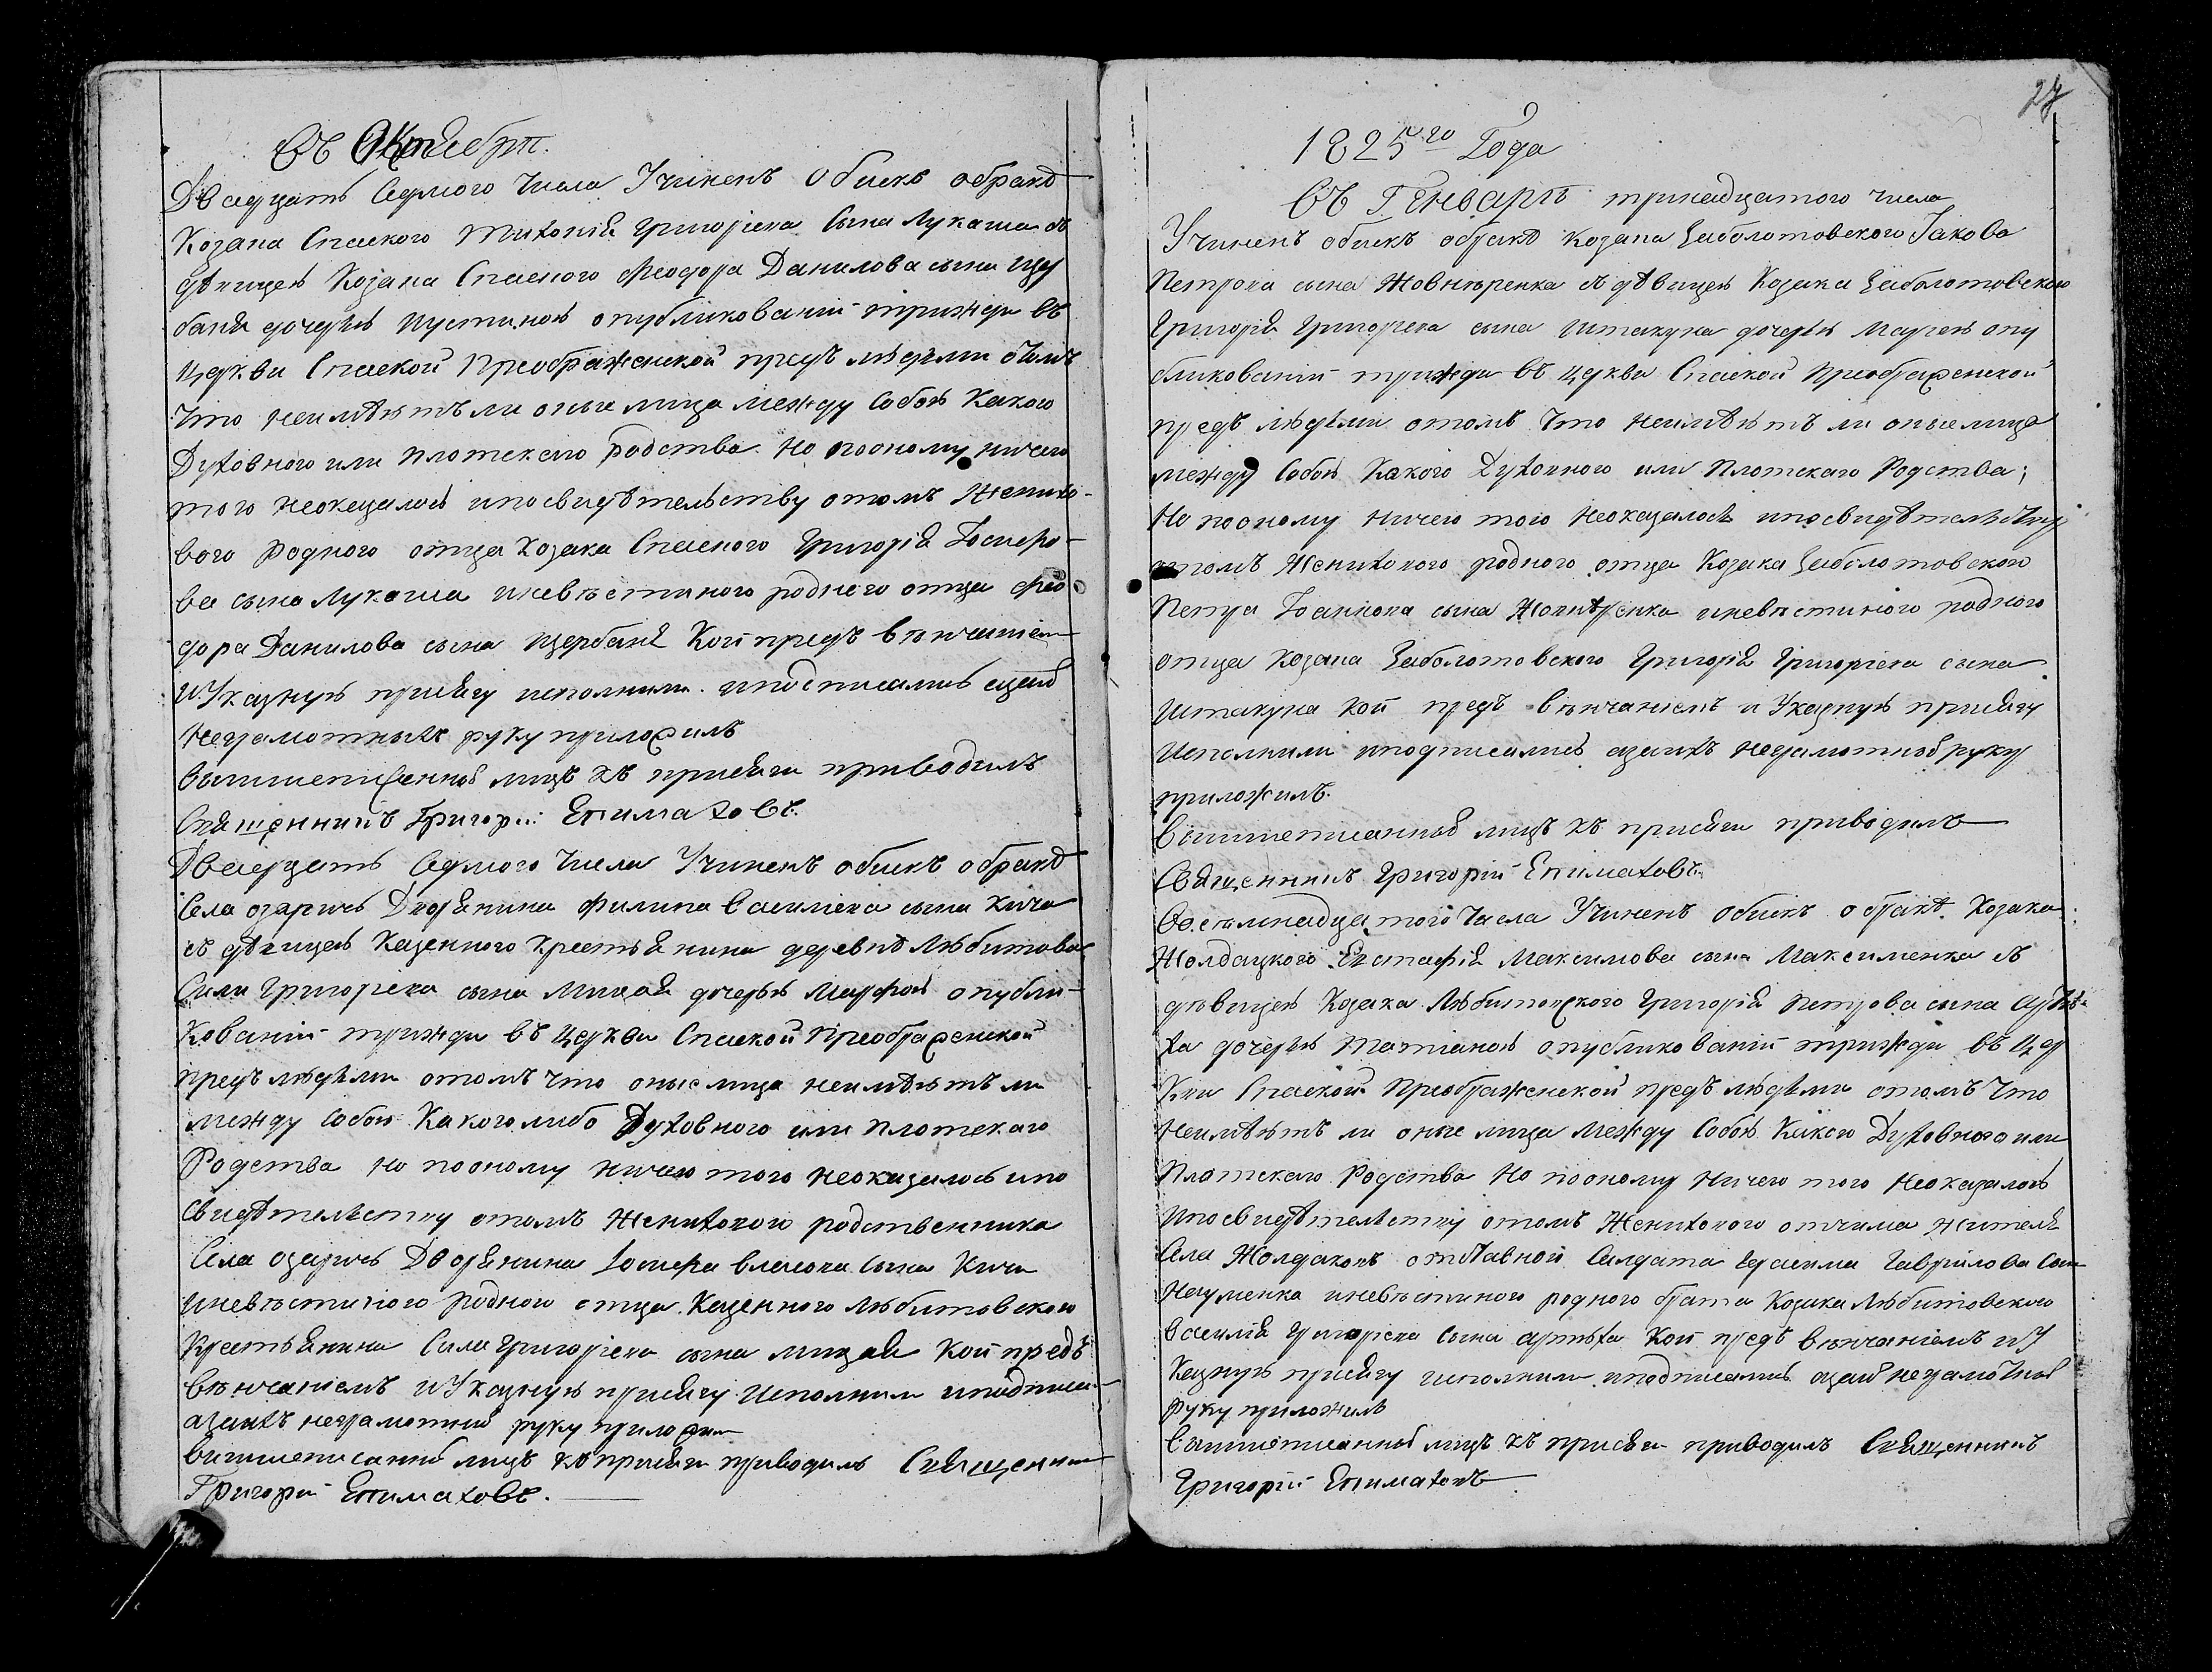 Въ Октябрѣ.
Двадцать Седмого Числа Учиненъ обыскъ обракѣ
Козака Спаского Тихонія Григоріева Сына Лукаша съ
дѣвицею Козака Спаского Феодора Данилова сына Щер
баня дочерью Иустиною опубликованій трижди въ
Церкви Спаской Преображенской предъ людьми отомъ
Что неимѣютъ ли оные лица между Собою Какого
Духовного или плотскаго родства. но пооному ничего
того неоказалось ипосвидѣтельству отомъ Женихо-
вого Родного отца Козака Спаского Григорія Іосифо-
ва сына Лукаша иневѣстиного родного отца Фео-
дора Данилова сына Щербаня Кои предъ вѣнчаніем
иУказную присягу исполнили. иподписались азаихъ
неграмотныхъ руку приложилъ
вышеписанныхъ лицъ къ присяги приводилъ
Священникъ Григорій Епимаховъ.
Двадцать Седмого Числа Учиненъ обыскъ обракѣ
Села озаричь Дворянина Филипа Василіева сына Кича
съ дѣвицею Казенного Крестьянина деревнѣ Любитова
Силы Григоріева сына Мицая дочерью Марфою опубли-
кованій трижди въ Церкви Спаской Преображенской
предъ людьми отомъ что оные лица неимѣютъ ли
между собою Какоголибо Духовного или плотскаго
Родства но пооному ничего того неоказалось ипо
свидѣтельству отомъ Женихового родственника
Села озаричь Дворянина Іосифа власова Сына Кича
иневѣстиного родного отца Казенного Любитовского
Крестьянина Силы Григоріева сына мицая Кои предъ
вѣнчаніемъ иУказную присягу Исполнили иподписа
азаихъ неграмотныхъ руку приложил
вышеписанныхъ лицъ къ присяги приводилъ Священник
Григорій Епимаховъ.
27
1825го Года
Въ Генварѣ тринадцатого числа
Учиненъ обыскъ обракѣ Козака Заболотовского Іакова
Петрова сына Жовнѣренка съ дѣвицею Козака Заболотовского
Григорія Григоріева сына Штакуна дочерью Марею опу
бликованій трижди въ церкви Спаской Преображенской
предъ людьми отомъ Что неимѣютъ ли оные лица
между Собою Какого Духовного или Плотскаго Родства;
Но пооному Ничего того Неоказалось ипосвидѣтельству
отомъ Женихового родного отца Козака Заболотовского
Петра Іоаннова сына Жовнѣренка иневѣстиного родного
отца Козака Заболотовского Григорія Григоріева сына
Штакуна Кои предъ вѣнчаніемъ и Указную присягу
Исполнили иподписались азаихъ неграмотныхъ руку
приложилъ.
вышеписанныхъ лицъ къ присяги приводилъ
Священникъ Григорій Епимаховъ.
Восемнадцатого Числа Учиненъ обыскъ обракѣ Козака
Жолдацкого Евстафія Максимова сына Максименка съ
дѣвицею Козака Любитовского Григорія Петрова сына Артю
ха дочерью Татіаною опубликованій трижди въ Цер
кви Спаской Приображенской предъ людьми отомъ Что
Неимѣютъ ли оные лица Между Собою Какого Духовного или
Плотскаго Родства Но пооному Ничего того Неоказалось
Ипосвидѣтельству отомъ Женихового отчима жителя
Села Жолдаковъ отставной Салдата Герасима Гаврилова Сын
Науменка иневѣстиного родного брата Козака Любитовского
Василія Григоріева Сына артюха Кои предъ вѣнчаніемъ иУ
Казную присягу исполнили иподписались азаихъ неграмотныхъ
Руку приложилъ
вышеписанныхъ лицъ къ присяги приводилъ Священникъ
Григорій Епимаховъ